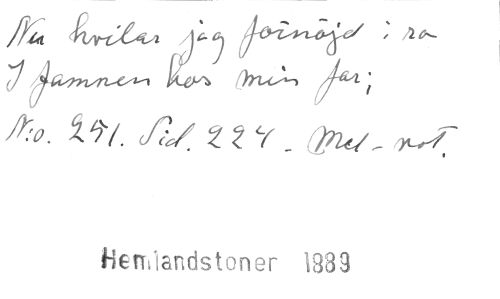 Nu hvilar jag förnöjd i ro
I famnen hos min far;
N:o. 251. Sid. 224 - Mel - not.
Hemlandstoner 1889